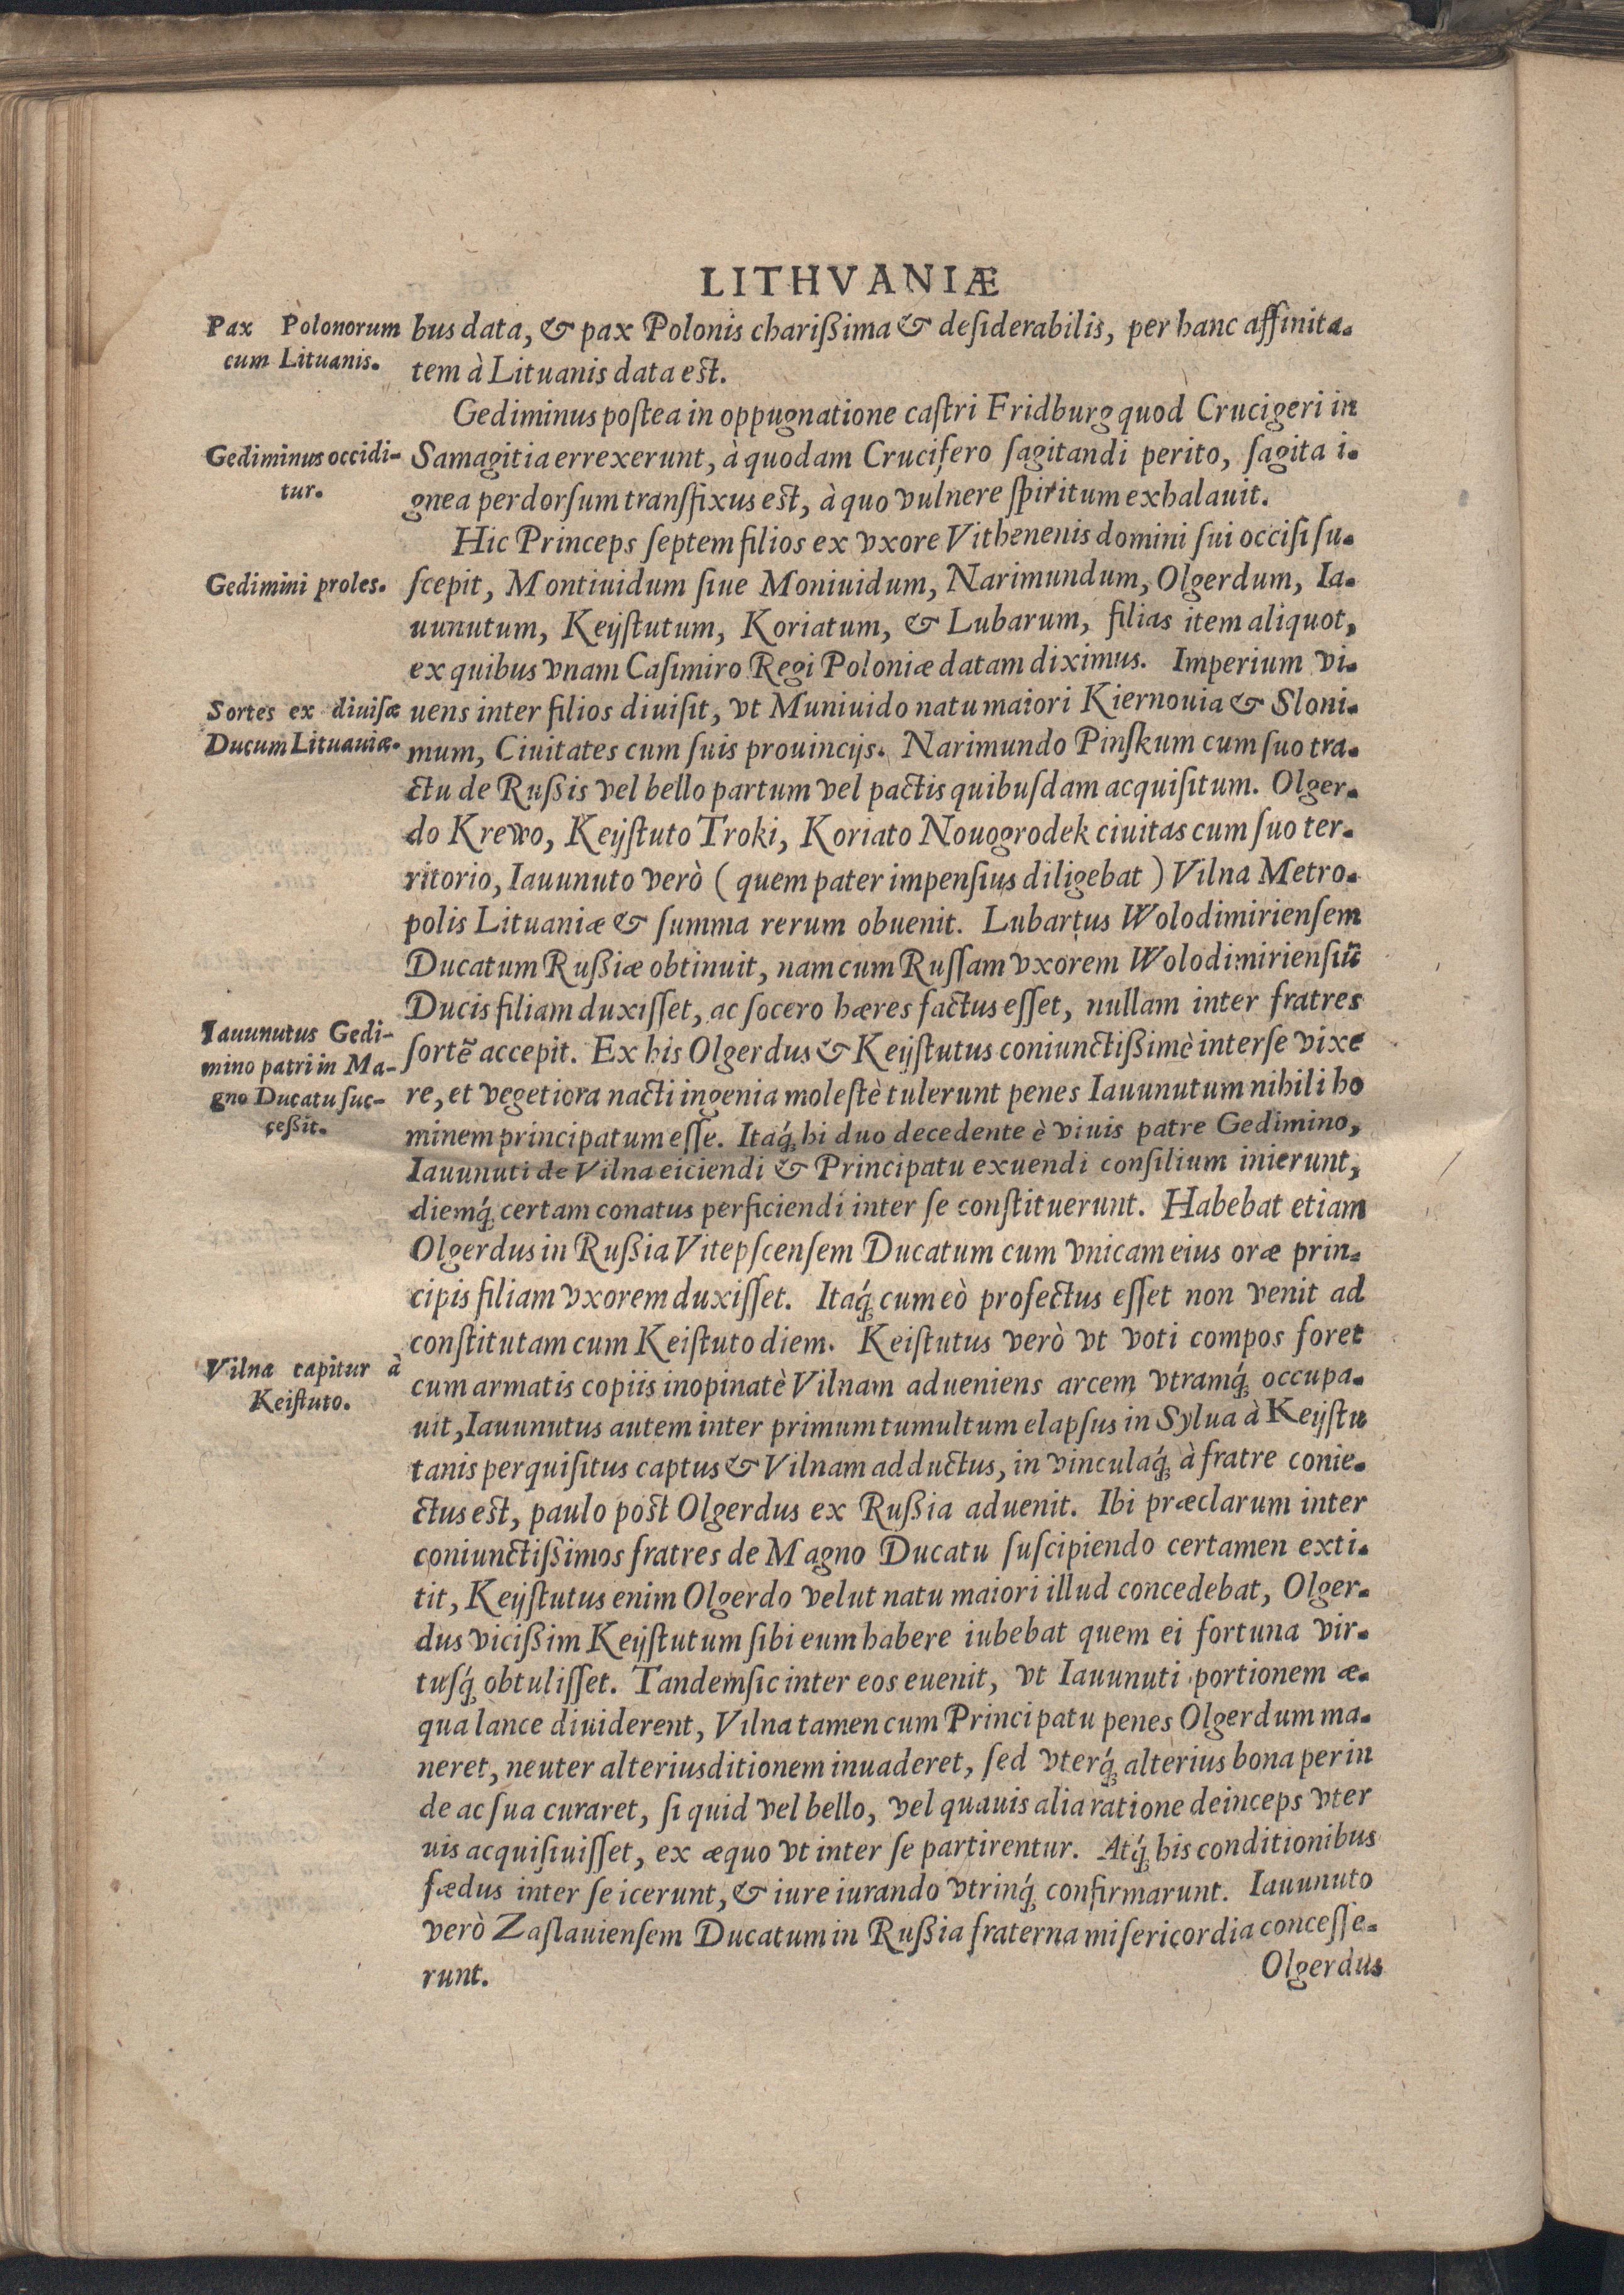 LITHVANIÆ
Pax Polonorum
cum Lituanis.
bus data, & pax Polonis charißima & deſiderabilis, per hanc affinita-
tem à Lituanis data est.
Gediminus poſtea in oppugnatione caſtri Fridburg quod Crucigeri in
Gediminus occidi-
tur.
Samagitia errexerunt, à quodam Crucifero ſagitandi perito, ſagita i-
gnea per dorſum transfixus est, à quo vulnere ſpiritum exhalauit.
Hic Princeps ſeptem filios ex vxore Vithenenis domini ſui occiſi ſu-
Gedimini proles.
ſcepit, Montiuidum ſiue Moniuidum, Narimundum, Olgerdum, Ia-
uunutum, Keijſtutum, Koriatum, & Lubarum, filias item aliquot,
ex quibus vnam Caſimiro Regi Poloniæ datam diximus. Imperium vi-
Sortes ex diuiſæ
Ducum Lituaniæ.
uens inter filios diuiſit, vt Muniuido natu maiori Kiernouia & Sloni-
mum, Ciuitates cum ſuis prouincijs. Narimundo Pinſkum cum ſuo tra-
ctu de Rußis vel bello partum vel pactis quibuſdam acquiſitum. Olger-
do Krewo, Keijſtuto Troki, Koriato Nouogrodek ciuitas cum ſuo ter-
ritorio, Iauunuto verò ( quem pater impenſius diligebat ) Vilna Metro-
polis Lituaniæ & ſumma rerum obuenit. Lubartus Wolodimirienſem
Ducatum Rußiæ obtinuit, nam cum Ruſſam vxorem Wolodimirienſiũ
Ducis filiam duxiſſet, ac ſocero hæres factus eſſet, nullam inter fratres
Iauunutus Gedi-
mino patri in Ma-
gno Ducatu ſuc-
ceßit.
ſortẽ accepit. Ex his Olgerdus & Keijſtutus coniunctißimè inter ſe vixe
re, et vegetiora nacti ingenia moleſtè tulerunt penes Iauunutum nihili ho
minem principatum eſſe. Itaq́; hi duo decedente è viuis patre Gedimino,
Iauunuti de Vilna eiciendi & Principatu exuendi conſilium inierunt,
diemq́; certam conatus perficiendi inter ſe conſtituerunt. Habebat etiam
Olgerdus in Rußia Vitepſcenſem Ducatum cum vnicam eius oræ prin-
cipis filiam vxorem duxiſſet. Itaq́; cum eò profectus eſſet non venit ad
conſtitutam cum Keiſtuto diem. Keiſtutus verò vt voti compos foret
Vilna capitur à
Keiſtuto.
cum armatis copiis inopinatè Vilnam adueniens arcem vtramq́; occupa-
uit, Iauunutus autem inter primum tumultum elapſus in Sylua à Keijſtu
tanis perquiſitus captus & Vilnam adductus, in vinculaq́; à fratre conie-
ctus est, paulo post Olgerdus ex Rußia aduenit. Ibi præclarum inter
coniunctißimos fratres de Magno Ducatu ſuſcipiendo certamen exti-
tit, Keijſtutus enim Olgerdo velut natu maiori illud concedebat, Olger-
dus vicißim Keijſtutum ſibi eum habere iubebat quem ei fortuna vir-
tuſq́; obtuliſſet. Tandem ſic inter eos euenit, vt Iauunuti portionem æ-
qua lance diuiderent, Vilna tamen cum Principatu penes Olgerdum ma-
neret, neuter alterius ditionem inuaderet, ſed vterq́; alterius bona perin
de ac ſua curaret, ſi quid vel bello, vel quauis alia ratione deinceps vter
uis acquiſiuiſſet, ex æquo vt inter ſe partirentur. Atq́; his conditionibus
fædus inter ſe icerunt, & iure iurando vtrinq́; confirmarunt. Iauunuto
verò Zaſlauienſem Ducatum in Rußia fraterna miſericordia conceſſe-
runt.
Olgerdus